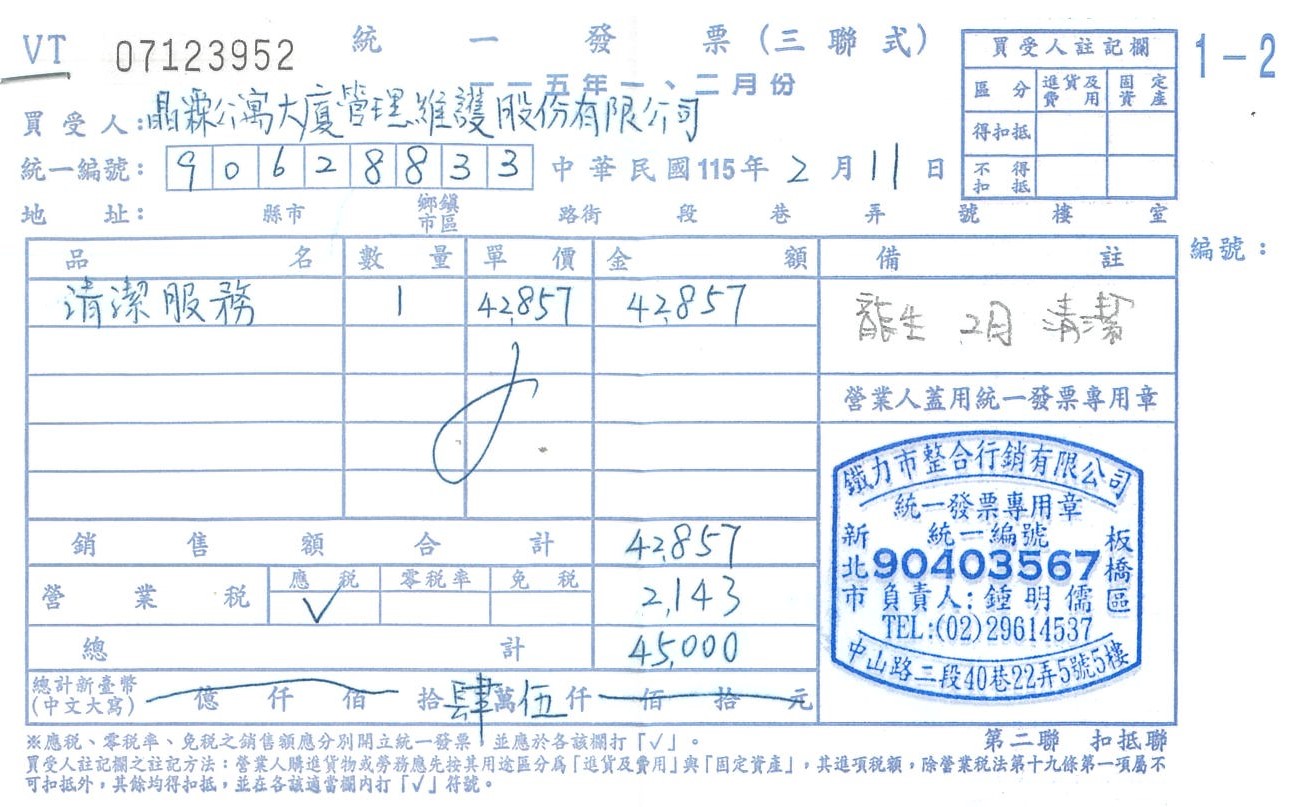 VT 07123952 統一發票(三聯式) 1-2
一一五年一、二月份
買受人:晶霖公寓大廈管理維護股份有限公司
統一編號: 90628833 中華民國115年2月11日
地址: 縣市 鄉鎮市區 路街 段 巷 弄 號 樓 室
買受人註記欄
區分 進貨及費用 固定資產
得扣抵
不得扣抵
編號:
品名 數量 單價 金額 備註
清潔服務 1 42,857 42,857 龍生 2月 清潔
營業人蓋用統一發票專用章
銷售額合計 42,857
營業稅 應稅 零稅率 免稅 2,143
√
總計 45,000
總計新臺幣(中文大寫) 億 仟 佰 拾肆萬伍仟 佰 拾 元
鐵力市整合行銷有限公司
統一發票專用章
統一編號
90403567
新北市 板橋區
負責人:鍾明儒
TEL:(02)29614537
中山路二段40巷22弄5號5樓
※應稅、零稅率、免稅之銷售額應分別開立統一發票,並應於各該欄打「√」。
第二聯 扣抵聯
買受人註記欄之註記方法:營業人購進貨物或勞務應先按其用途區分為「進貨及費用」與「固定資產」,其進項稅額,除營業稅法第十九條第一項屬不
可扣抵外,其餘均得扣抵,並在各該適當欄內打「√」符號。